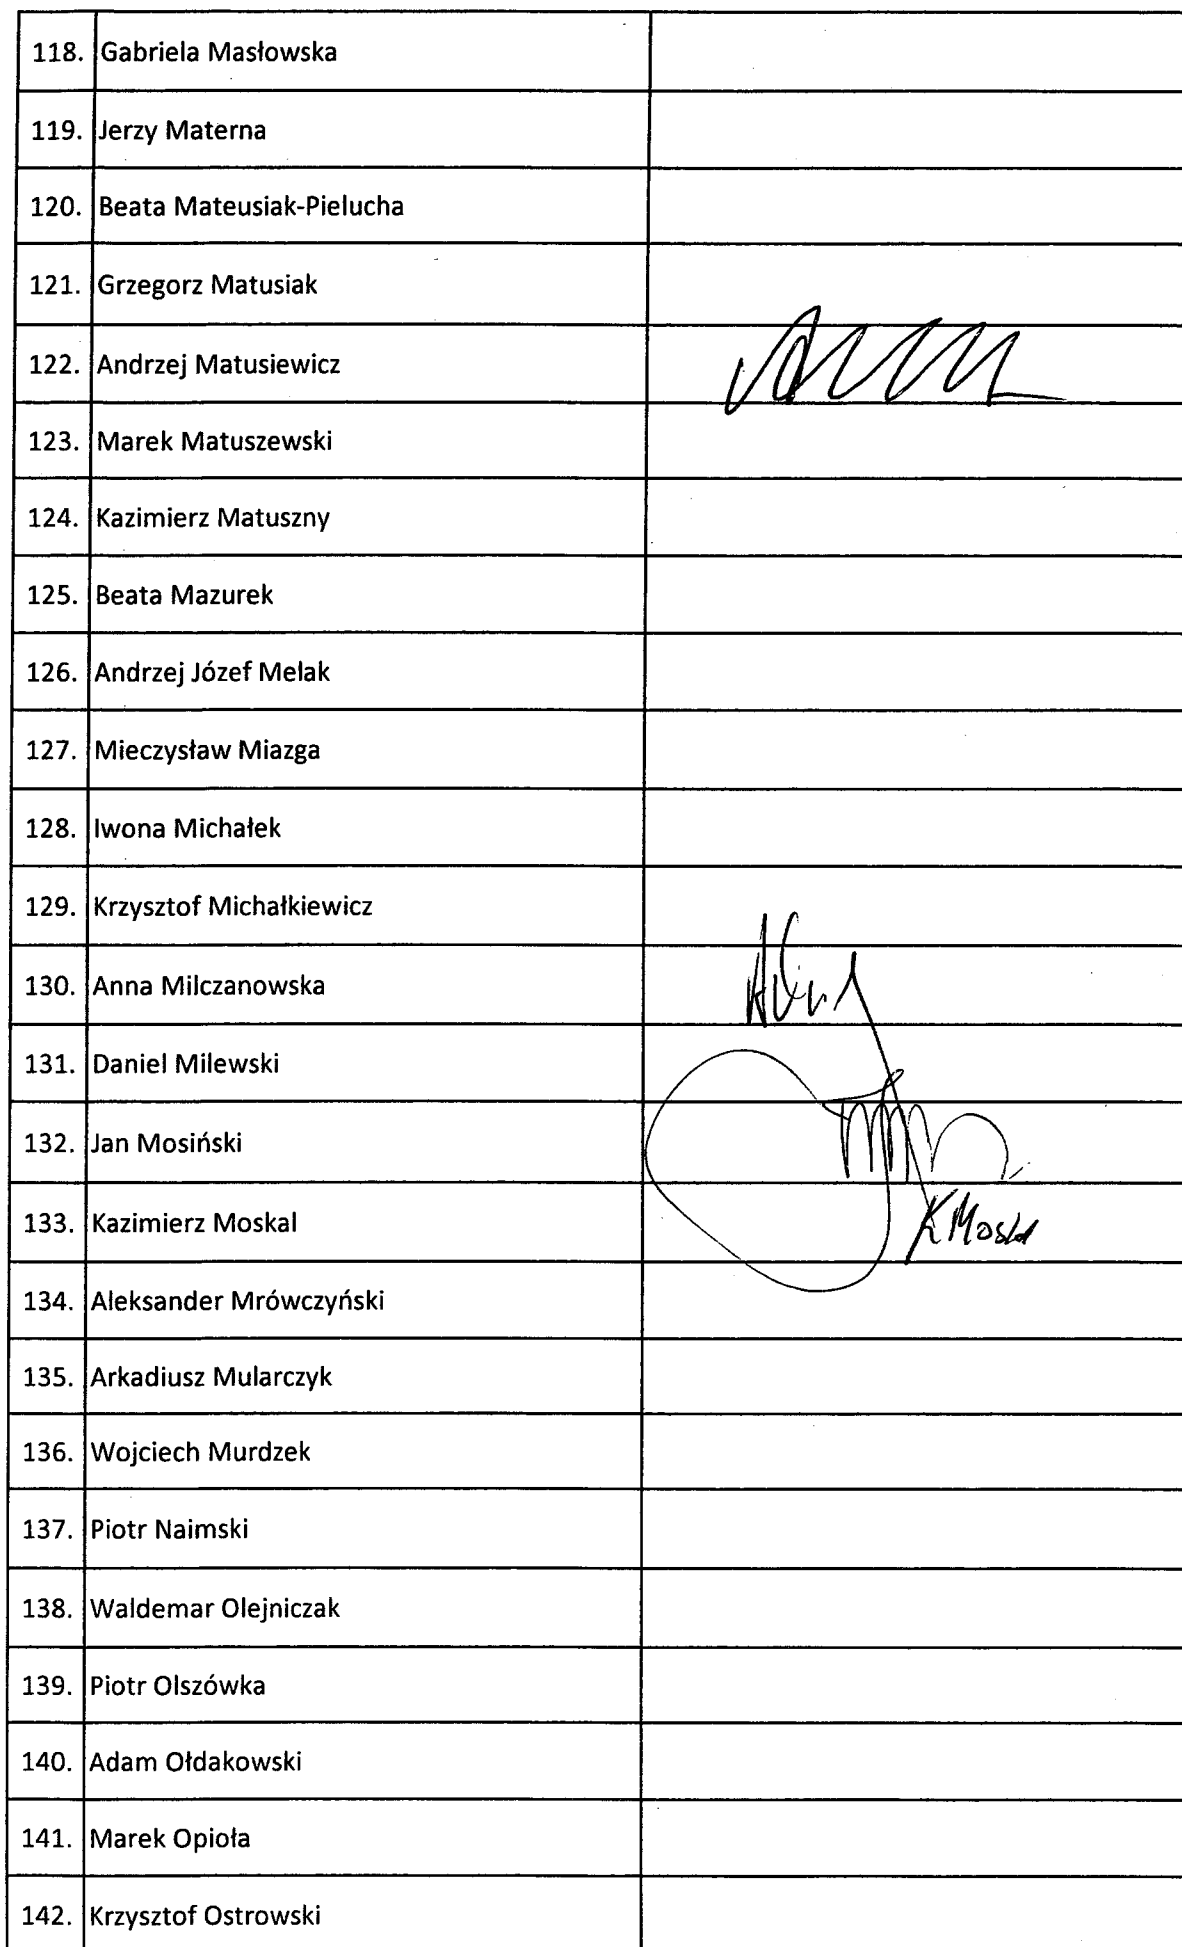 118. Gabriela Masłowska
119. Jerzy Materna
120. Beata Mateusiak-Pielucha
121. Grzegorz Matusiak
122. Andrzej Matusiewicz
123. Marek Matuszewski
124. Kazimierz Matuszny
125. Beata Mazurek
126. Andrzej Józef Melak
127. Mieczysław Miazga
128. Iwona Michałek
129. Krzysztof Michałkiewicz
130. Anna Milczanowska
131. Daniel Milewski
132. Jan Mosiński
133. Kazimierz Moskal
134. Aleksander Mrówczyński
135. Arkadiusz Mularczyk
136. Wojciech Murdzek
137. Piotr Naimski
138. Waldemar Olejniczak
139. Piotr Olszówka
140. Adam Ołdakowski
141. Marek Opioła
142. Krzysztof Ostrowski